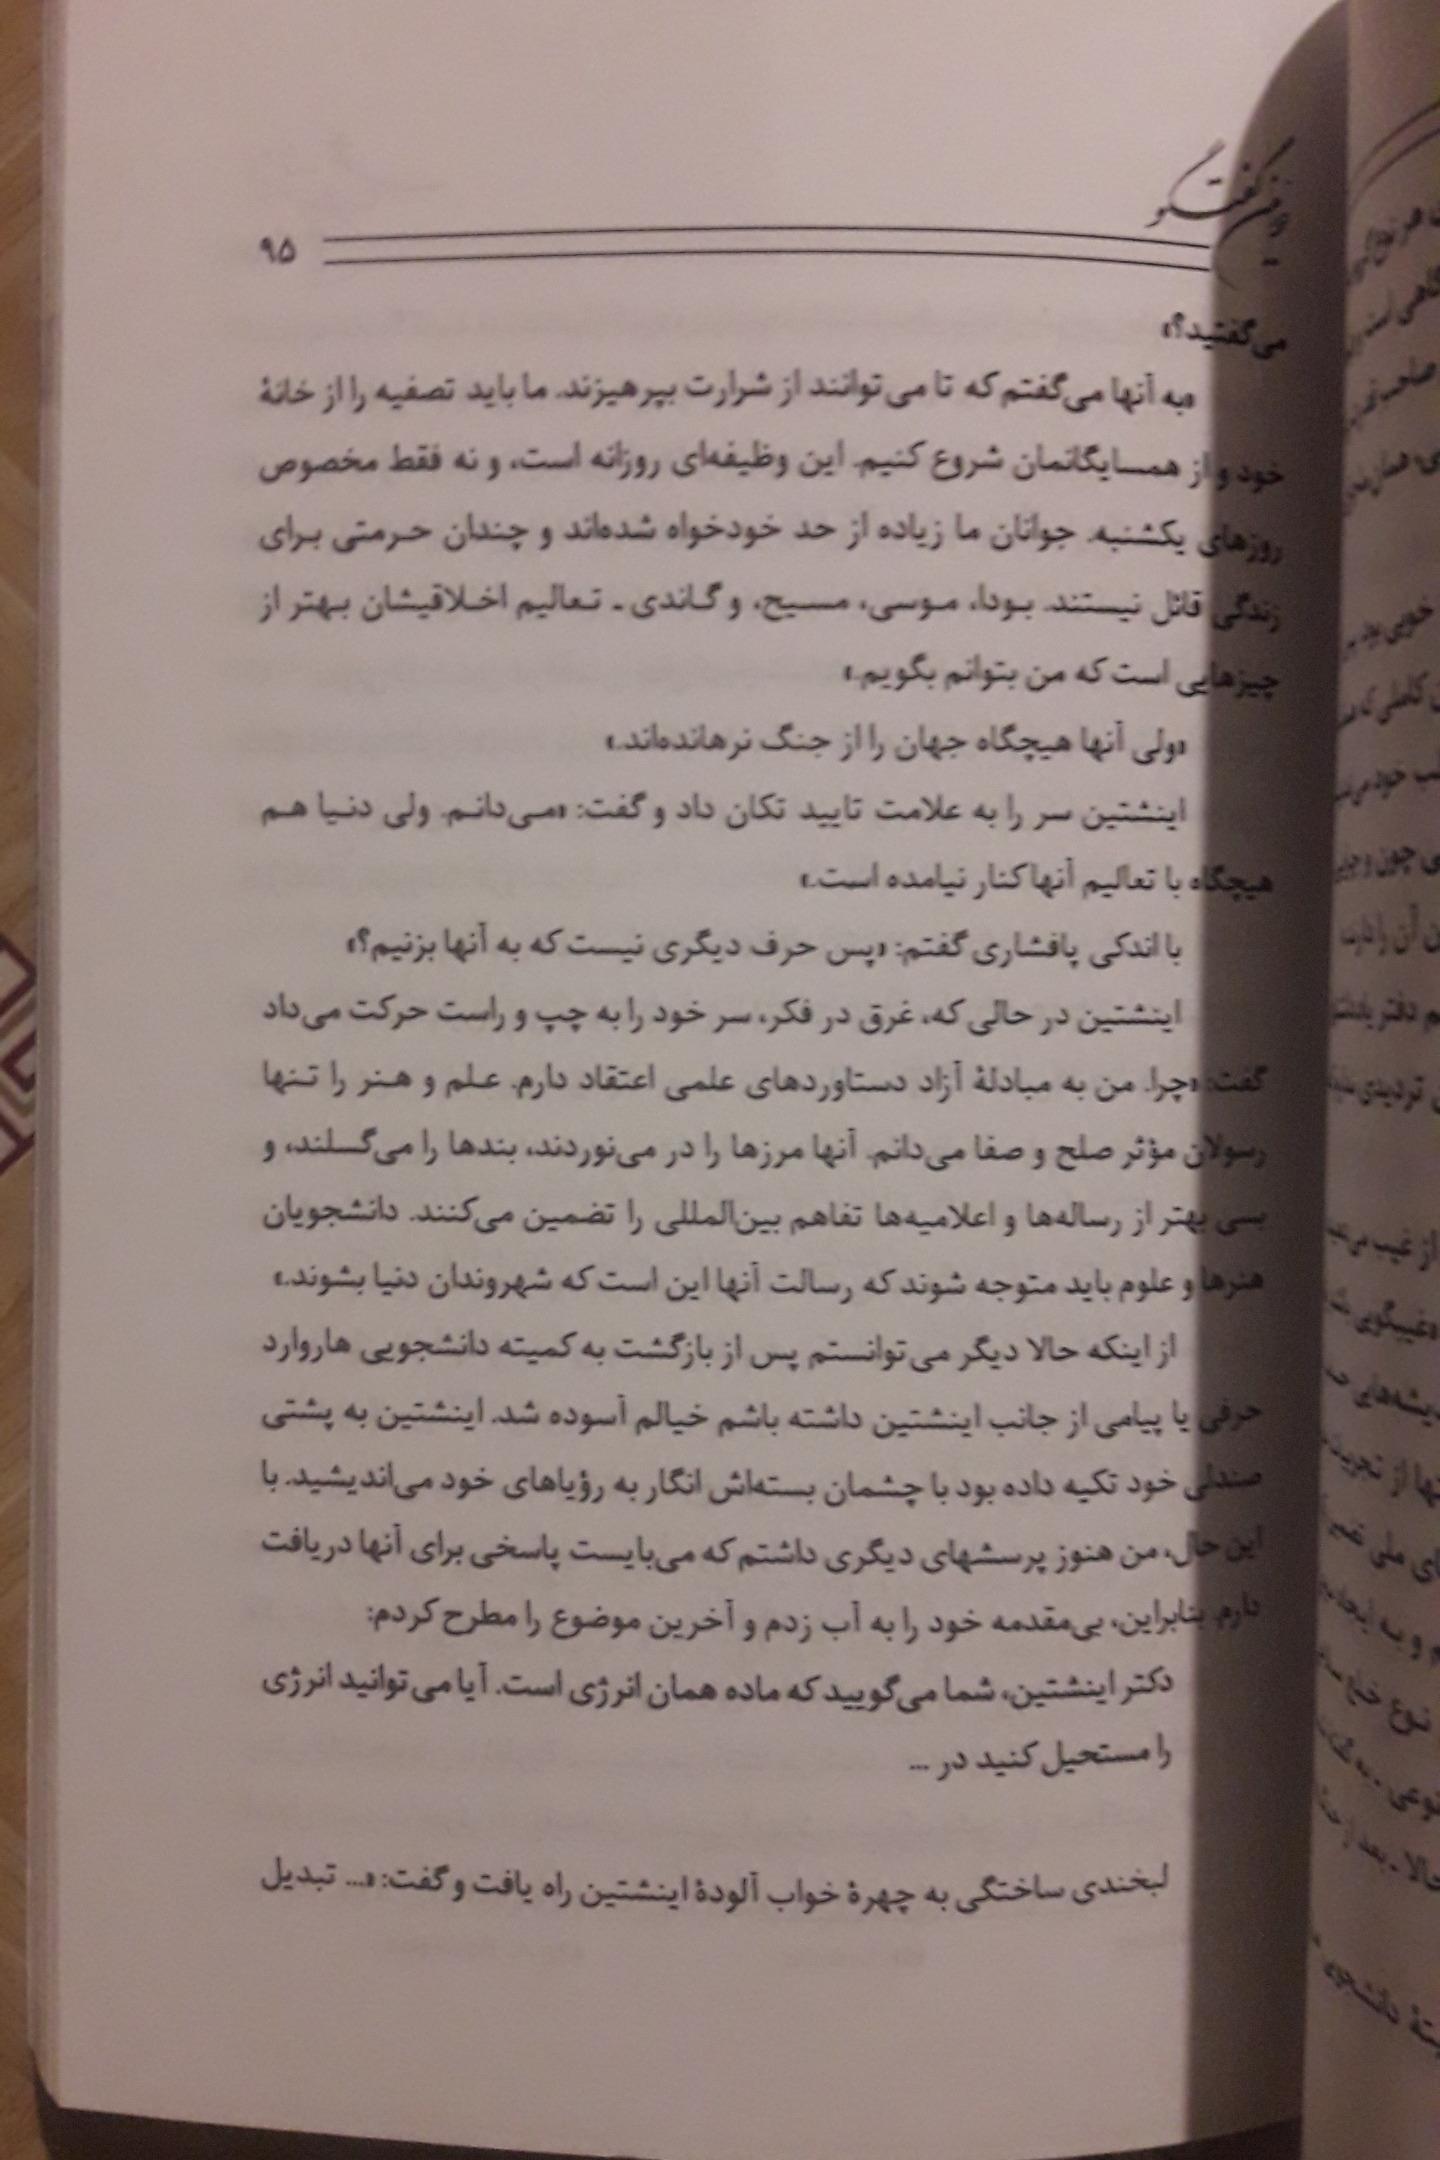 ۹۵
می‌گفتید؟»
«به آنها می‌گفتم که تا می‌توانند از شرارت بپرهیزند. ما باید تصفیه را از خانهٔ
خود و از همسایگانمان شروع کنیم. این وظیفه‌ای روزانه است، و نه فقط مخصوص
روزهای یکشنبه. جوانان ما زیاده از حد خودخواه شده‌اند و چندان حرمتی برای
زندگی قائل نیستند. بودا، موسی، مسیح، و گاندی ـ تعالیم اخلاقیشان بهتر از
چیزهایی است که من بتوانم بگویم.»
«ولی آنها هیچگاه جهان را از جنگ نرهانده‌اند.»
اینشتین سر را به علامت تایید تکان داد و گفت: «می‌دانم. ولی دنیا هم
هیچگاه با تعالیم آنها کنار نیامده است.»
با اندکی پافشاری گفتم: «پس حرف دیگری نیست که به آنها بزنیم؟»
اینشتین در حالی که، غرق در فکر، سر خود را به چپ و راست حرکت می‌داد
گفت: «چرا. من به مبادلهٔ آزاد دستاوردهای علمی اعتقاد دارم. علم و هنر را تنها
رسولان مؤثر صلح و صفا می‌دانم. آنها مرزها را در می‌نوردند، بندها را می‌گسلند، و
بسی بهتر از رساله‌ها و اعلامیه‌ها تفاهم بین‌المللی را تضمین می‌کنند. دانشجویان
هنرها و علوم باید متوجه شوند که رسالت آنها این است که شهروندان دنیا بشوند.»
از اینکه حالا دیگر می‌توانستم پس از بازگشت به کمیته دانشجویی هاروارد
حرفی یا پیامی از جانب اینشتین داشته باشم خیالم آسوده شد. اینشتین به پشتی
صندلی خود تکیه داده بود با چشمان بسته‌اش انگار به رؤیاهای خود می‌اندیشید. با
این حال، من هنوز پرسشهای دیگری داشتم که می‌بایست پاسخی برای آنها دریافت
دارم. بنابراین، بی‌مقدمه خود را به آب زدم و آخرین موضوع را مطرح کردم:
دکتر اینشتین، شما می‌گویید که ماده همان انرژی است. آیا می‌توانید انرژی
را مستحیل کنید در ...
لبخندی ساختگی به چهرهٔ خواب آلودهٔ اینشتین راه یافت و گفت: «... تبدیل